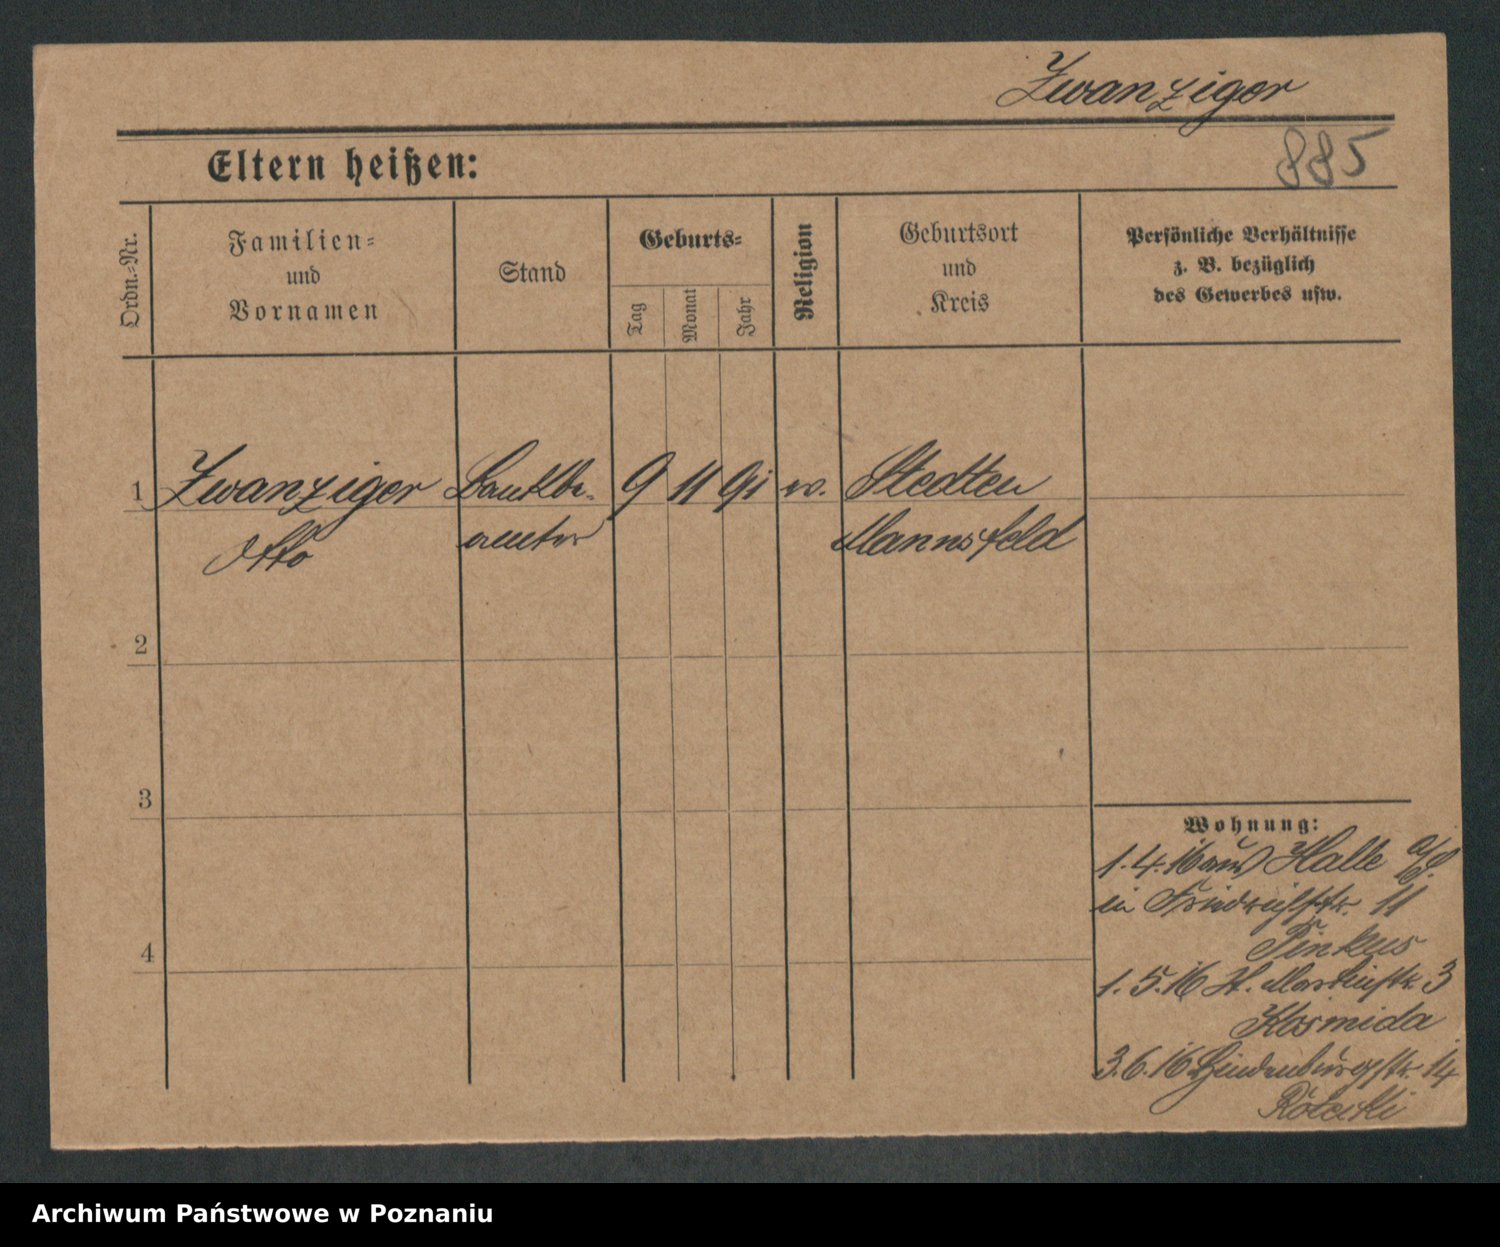 Zwanziger
885
Eltern heißen:
Ordn.-Nr.
Familien-
und
Vornamen
Stand
Geburts-
Tag
Monat
Jahr
Religion
Geburtsort
und
Kreis
Persönliche Verhältnisse
z. B. bezüglich
des Gewerbes usw.
1 Zwanziger Bankbe- 9 11 91 ev. Stedten
Otto amter Mannsfeld
2
3
4
Wohnung:
1.4.16 aus Halle a/S.
in Friedrichstr. 11
Pinkus
1.5.16 St. Martinstr. 3
Kosmida
3.6.16 Hindenburgstr. 14
Archiwum Państwowe w Poznaniu